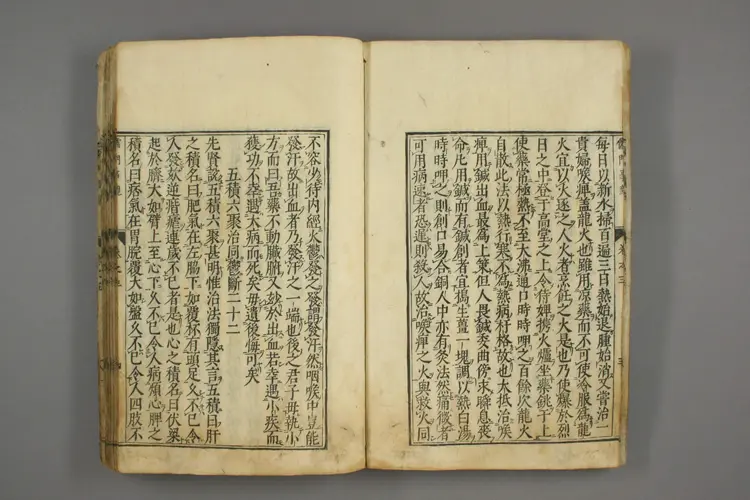 每日以新水掃百遍三日熱始退腫始消又嘗治一
貴婦喉痺蓋龍火也雖用凉藥而不可使令服爲龍
火宜以火逐之人火者烹飪之火是也乃使爆於烈
日之中登于高堂之上令侍婢携火爐坐藥銚于上
使藥常極熱不至大沸通口時時呷之百餘次龍火
自散此法以熱行寒不爲熱病扞格故也大抵治喉
痺用鍼出血最爲上策但人畏鍼委曲傍求瞬息喪
命凡用鍼而有鍼創者宜搗生薑一塊調以熱白湯
時時呷之則創口易合銅人中亦有灸法然痛微者
可用病速者恐遲則殺人故治喉痺之火與救火同
不容少待内經火鬱發之發謂發汗然咽喉中豈能
發汗故出血者乃發汗之一端也後之君子毋執小
方而曰吾藥不動臟腑又妙於出血若幸遇小疾而
獲功不幸遇大病而死矣毋遺後悔可矣
五積六聚治同鬱斷二十二
先賢說五積六聚甚明惟治法獨隱其言五積曰肝
之積名曰肥氣在左脇下如覆杯有頭足久不已令
人發欬逆痎瘧連歲不已者是也心之積名曰伏梁
起於臍大如臂上至心下久不已令人病煩心脾之
積名曰痞氣在胃脘覆大如盤久不已令人四肢不